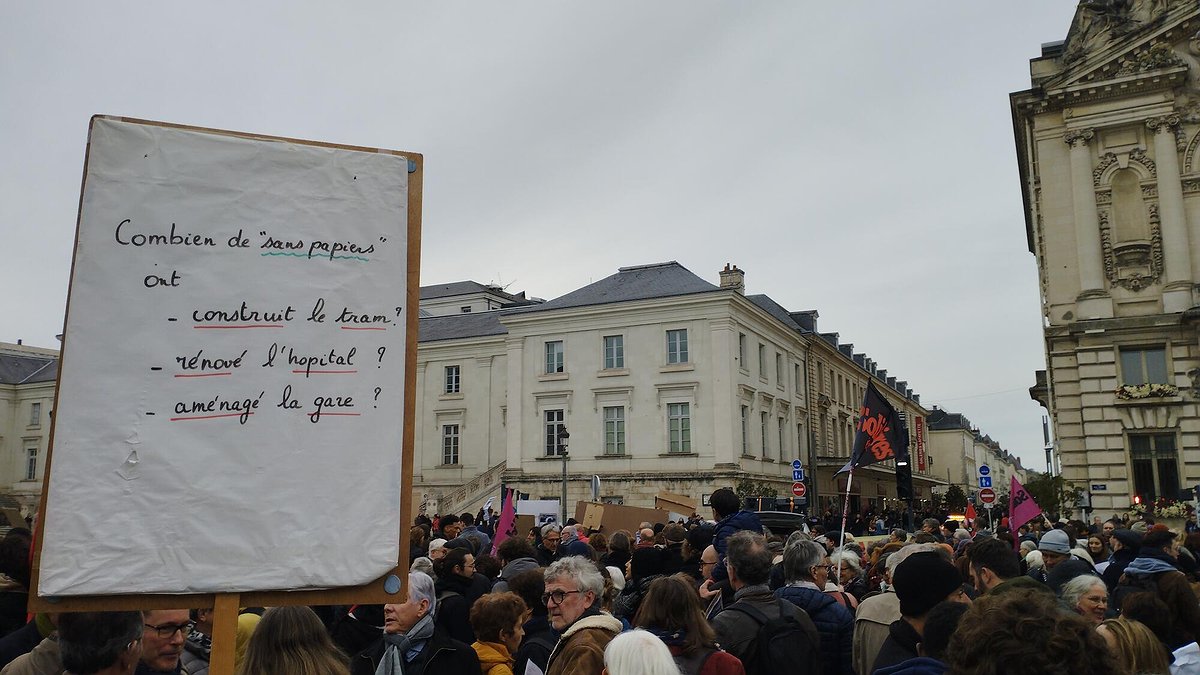 Combien de "sans papiers"
ont
- construit le tram ?
- rénové l'hopital ?
- aménagé la gare ?
Solidaires